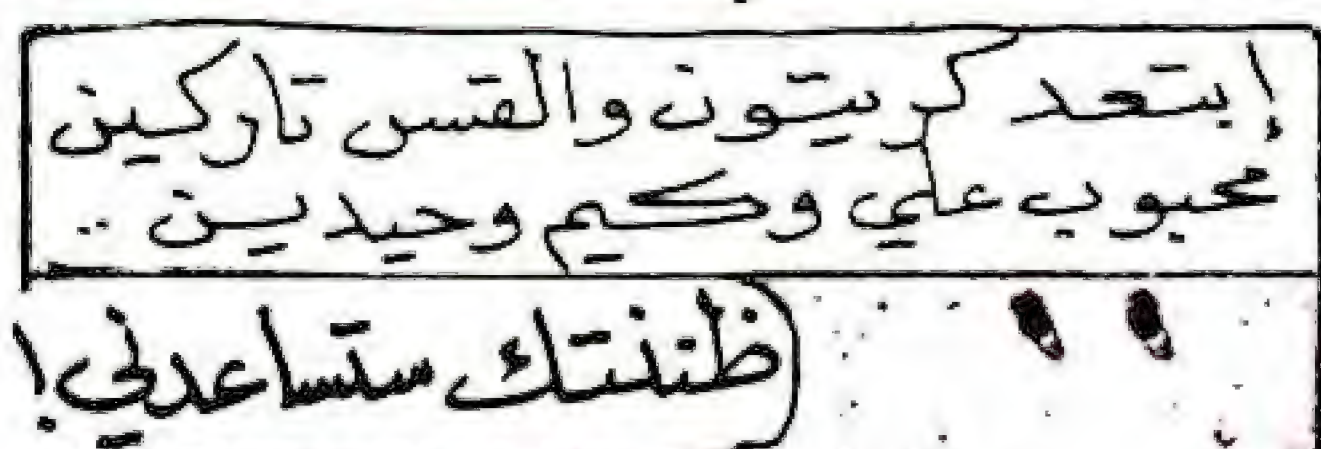 إبتعد كريتون والقس تاركين
محبوب علي وكيم وحيدين ..
ظننتك ستساعدني!